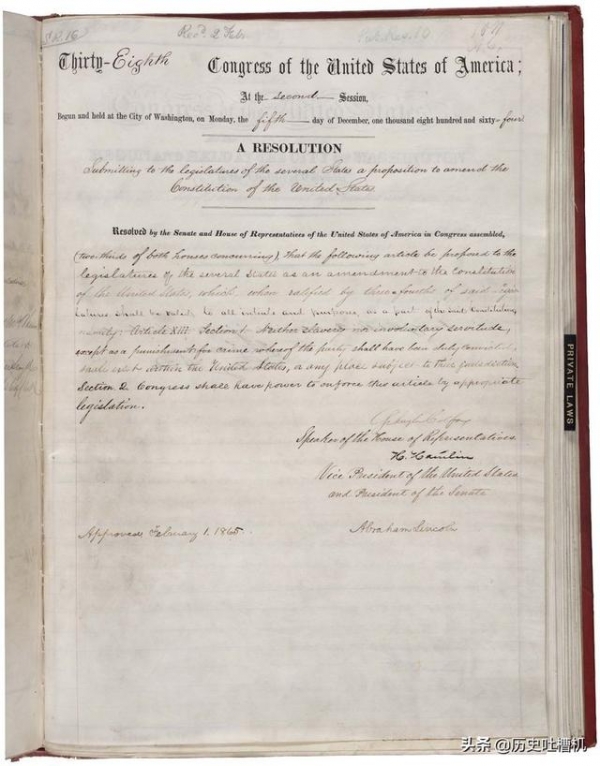 S.R. 16
Rec'd 2 Feb.
Thirty-Eighth Congress of the United States of America;
At the second Session,
Begun and held at the City of Washington, on Monday, the fifth day of December, one thousand eight hundred and sixty-four
A RESOLUTION
Submitting to the legislatures of the several States a proposition to amend the
Constitution of the United States
Resolved by the Senate and House of Representatives of the United States of America in Congress assembled,
(two thirds of both houses concurring), That the following article be proposed to the
legislatures of the several States as an amendment to the Constitution
of the United States, which, when ratified by three-fourths of said legis
latures shall be valid, to all intents and purposes, as a part of the said Constitution,
namely: Article XIII. Section 1. Neither slavery nor involuntary servitude,
except as a punishment for crime whereof the party shall have been duly convicted,
shall exist within the United States, or any place subject to their jurisdiction.
Section 2. Congress shall have power to enforce this article by appropriate
legislation.
Schuyler Colfax
Speaker of the House of Representatives
H. Hamlin
Vice President of the United States
and President of the Senate
Approved February 1, 1865.
Abraham Lincoln
PRIVATE LAWS
头条 @历史吐槽机